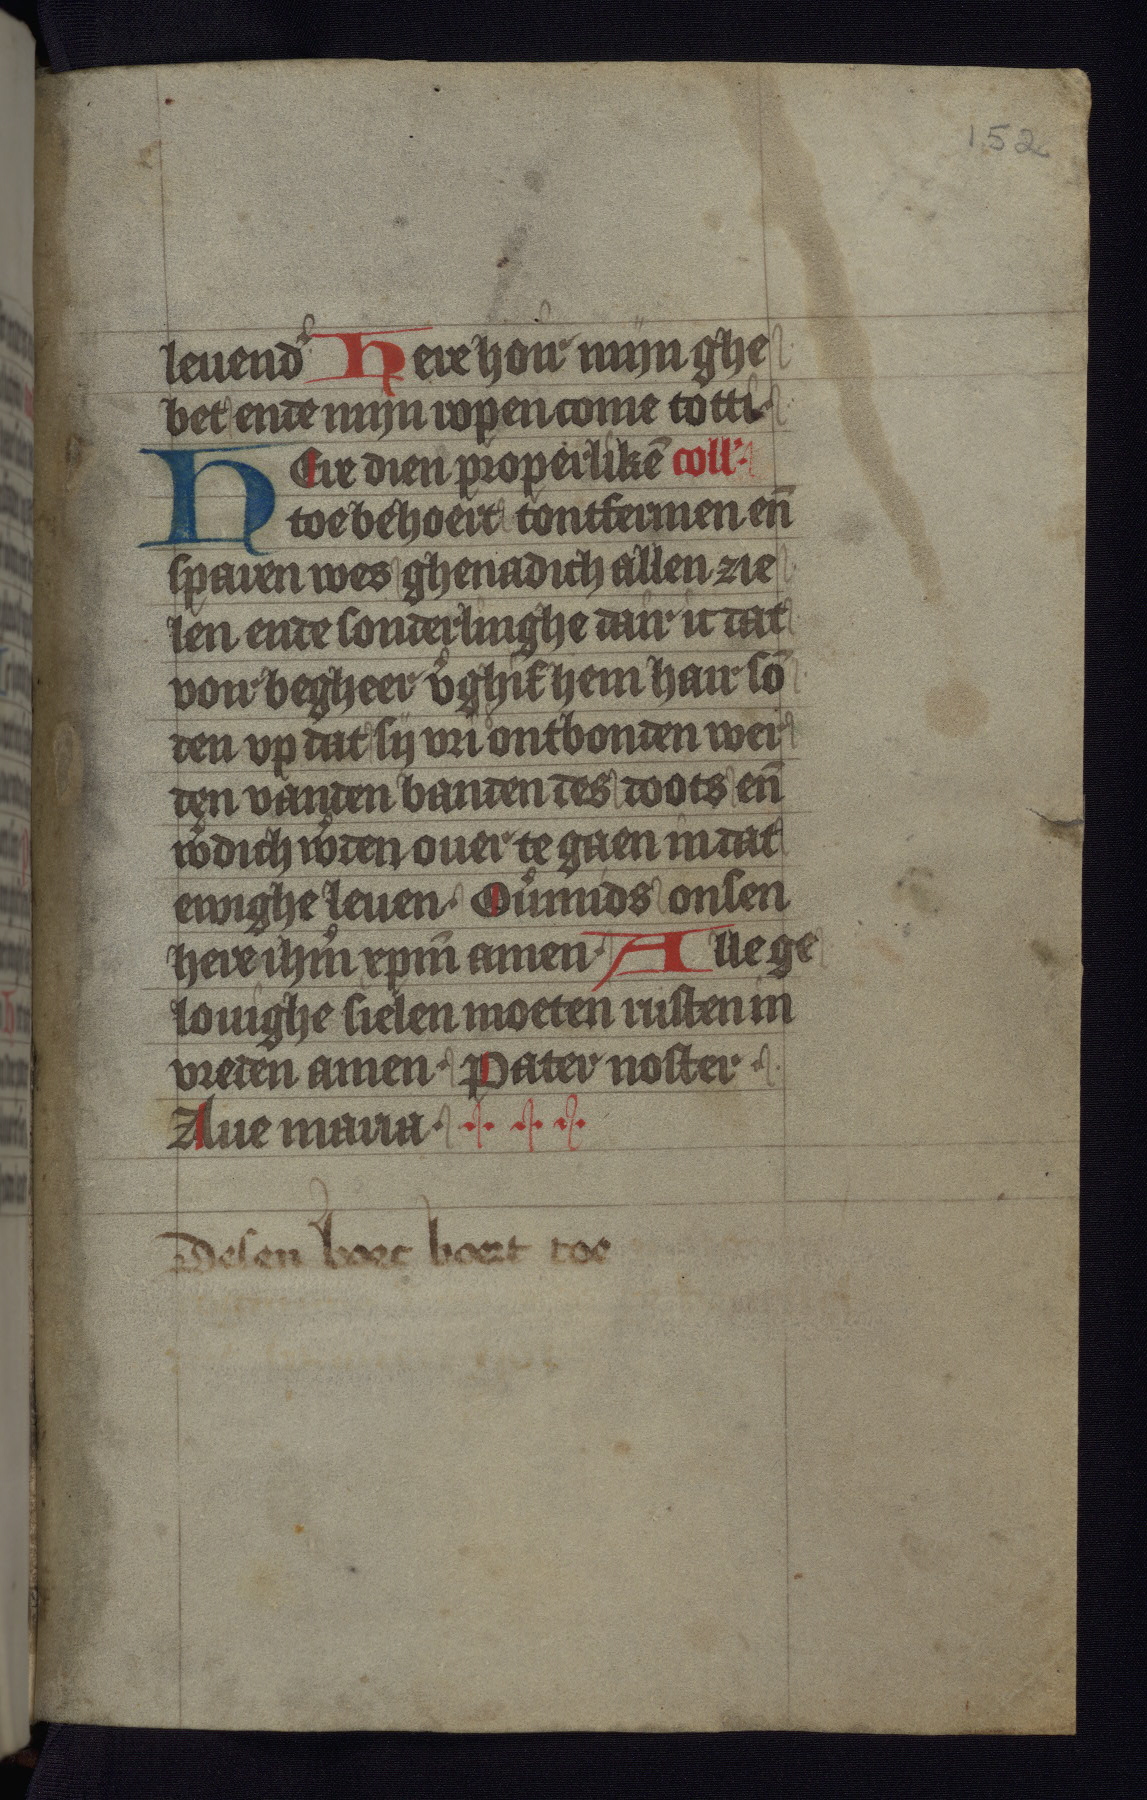 152
leuend᷑ Here hoir mijn ghe
bet ende mijn ropen come totti
HEire dien properlikē coll'
toebehoert tontfermen eñ
sparen wes ghenadich allen zie
len ende sonderlinghe dair ic dat
voir begheer v᷑ghif hem hair sō
den vp dat sij vri ontbonden wer
den vanden banden des doots eñ
w᷑dich w᷑den ouer te gaen in dat
ewighe leuen. Ou᷑mids onsen
here ihm̄ xpm̄ amen. Alle ge
louighe sielen moeten rusten in
vreden amen. Pater noster.
Aue maria.
Desen boec hoert toe